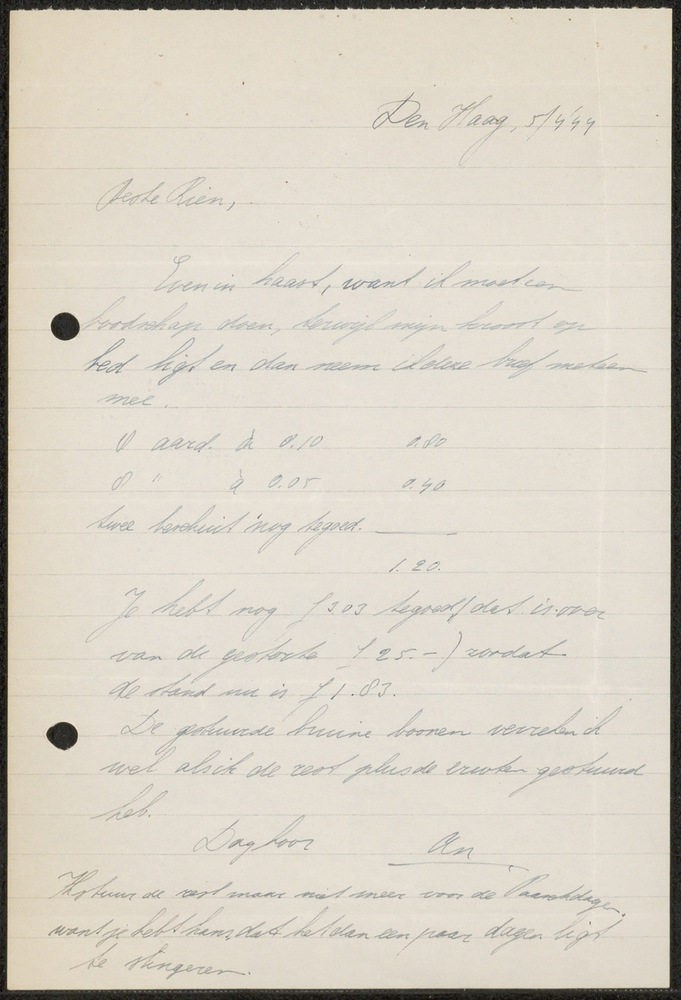 Den Haag, 5/4'44
Beste Rien,
Even in haast, want ik moet een
boodschap doen, terwijl mijn kroost op
bed ligt en dan neem ik deze brief meteen
mee.
8 aard. à 0.10 0.80
8 " à 0.05 0.40
twee beschuit nog tegoed.
1.20.
Je hebt nog f 3.03 tegoed (dat is over
van de gestorte f 25.-) zoodat
de stand nu is f 1.83.
De gestuurde bruine boonen verreken ik
wel als ik de rest plus de erwten gestuurd
heb.
Dag hoor An
Ik stuur de rest maar niet meer voor de Paaschdagen,
want je hebt kans, dat het dan een paar dagen ligt
te slingeren.